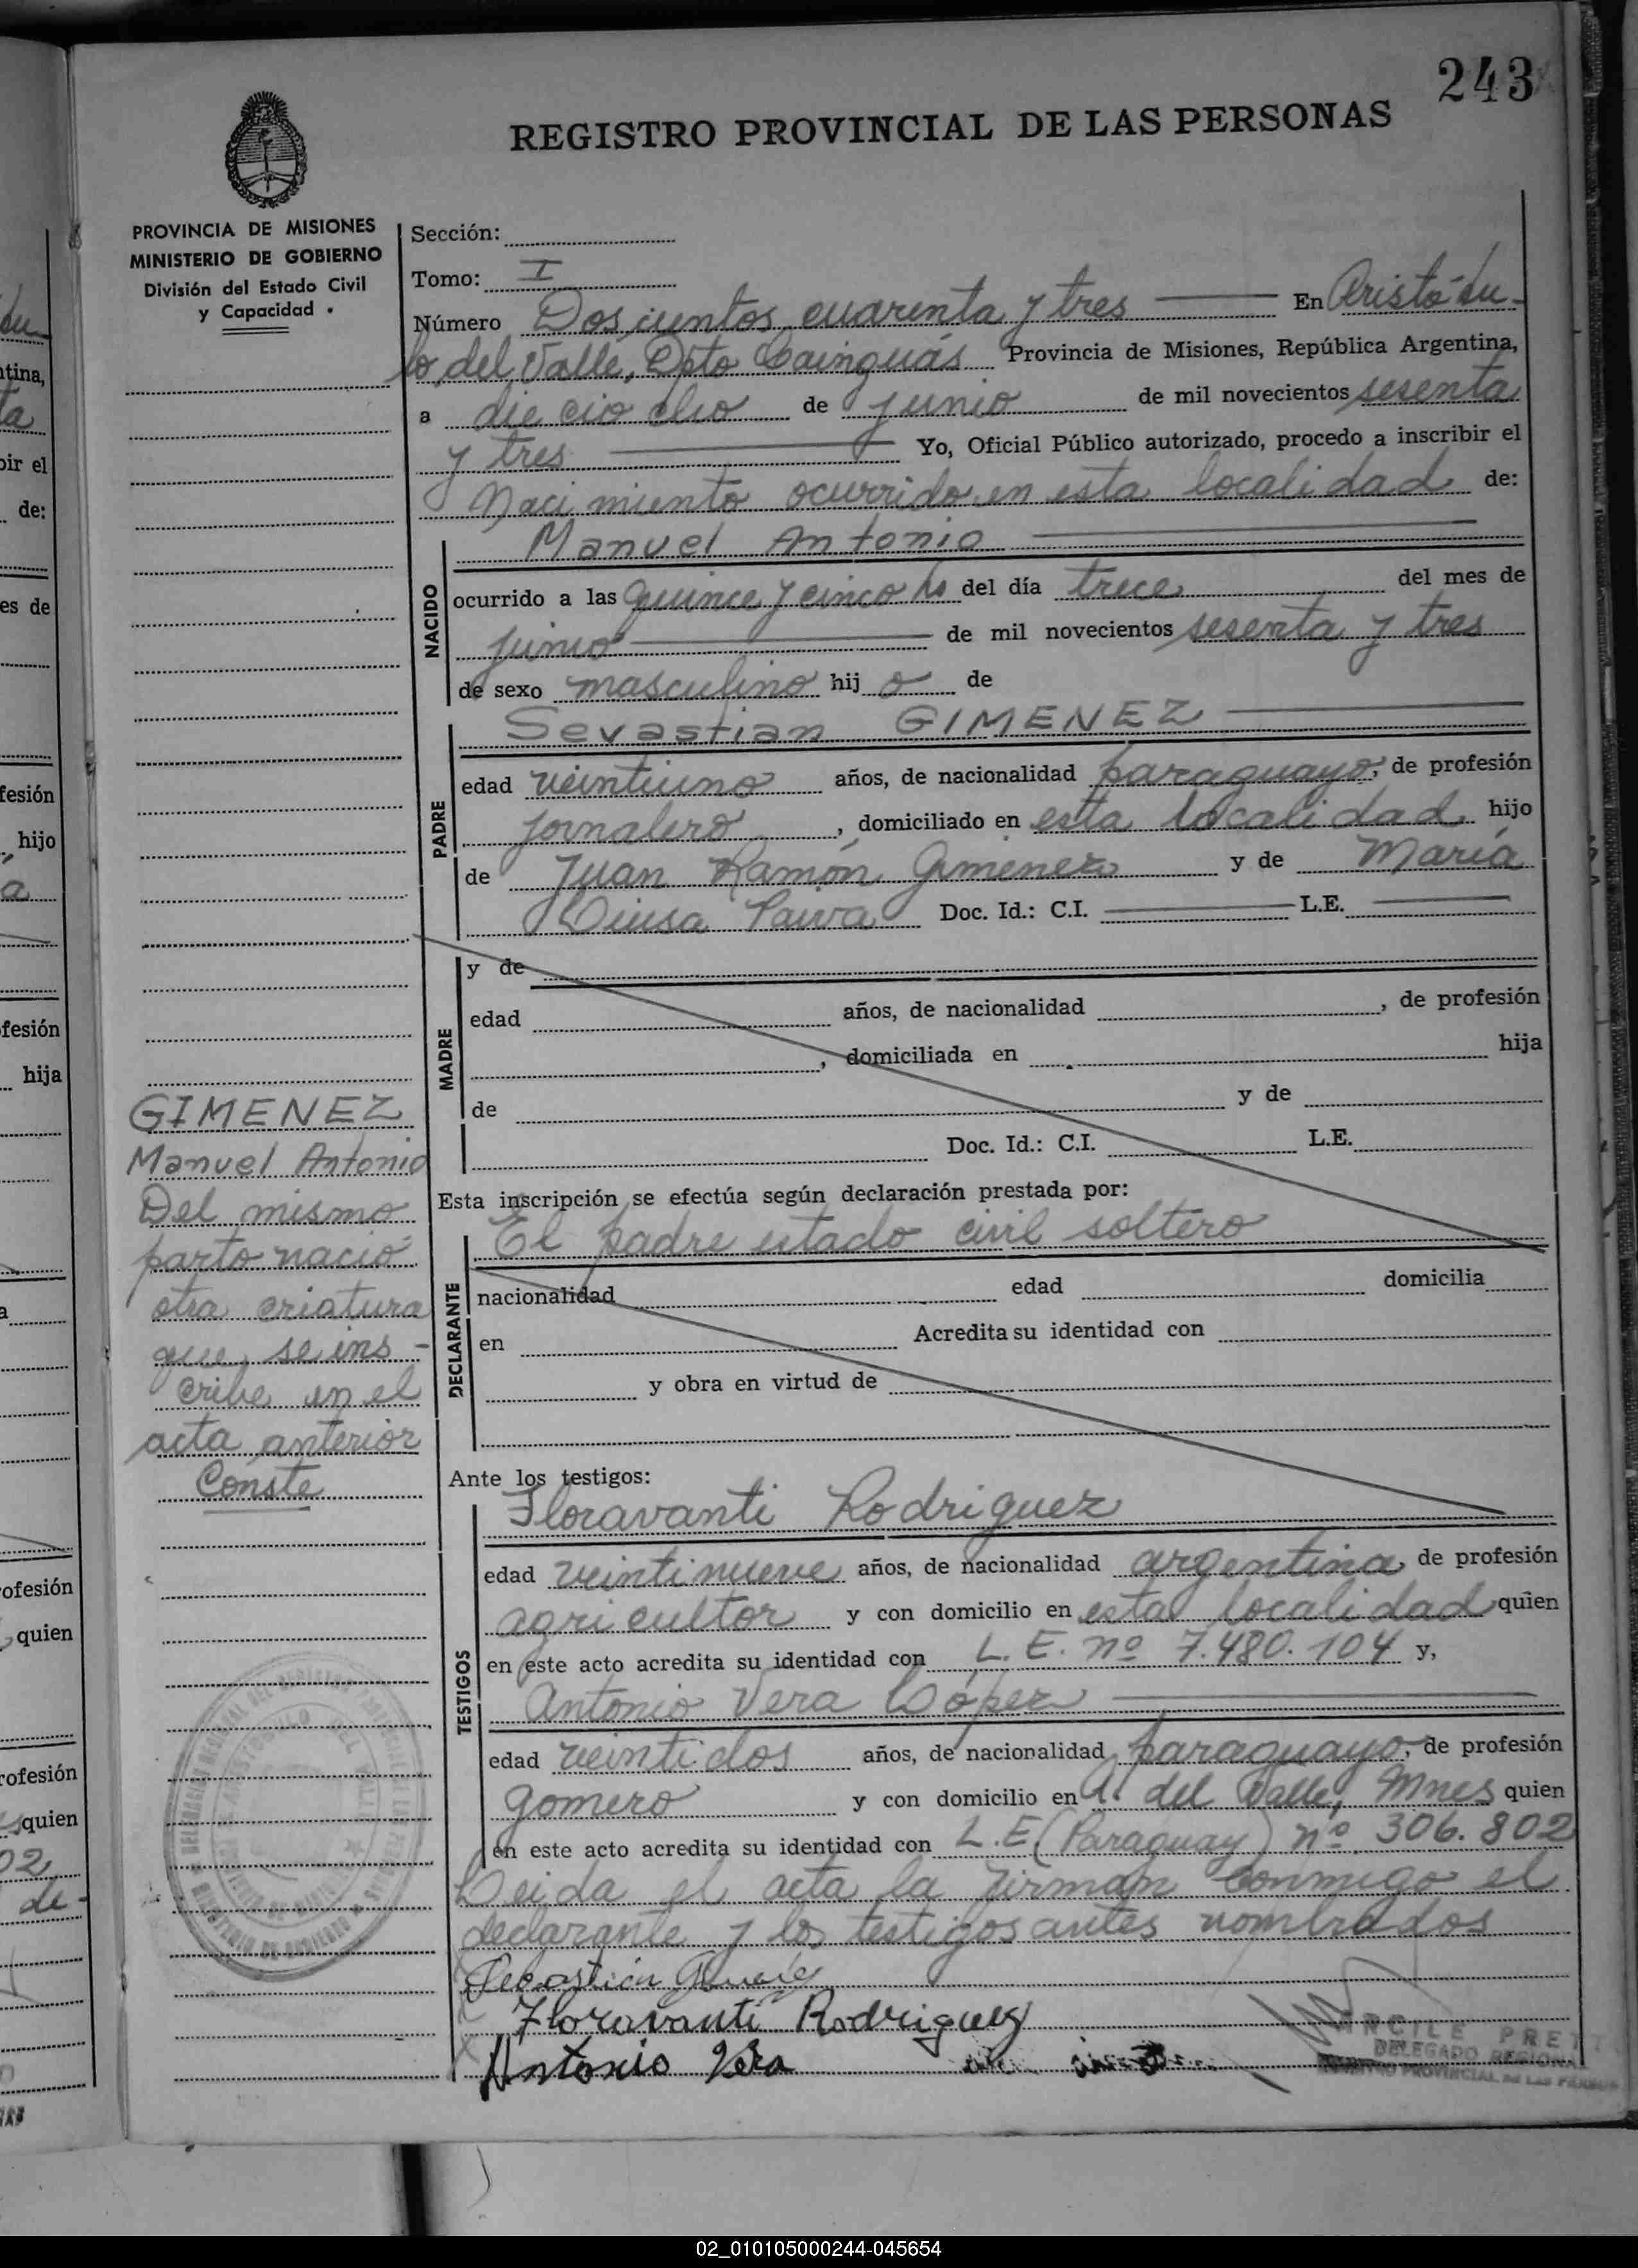 243
REGISTRO PROVINCIAL DE LAS PERSONAS
PROVINCIA DE MISIONES
MINISTERIO DE GOBIERNO
División del Estado Civil
y Capacidad
Sección:
Tomo: I
Número Doscientos cuarenta y tres En Aristóbu-
lo del Valle, Dpto Cainguás Provincia de Misiones, República Argentina,
a dieciocho de junio de mil novecientos sesenta
y tres Yo, Oficial Público autorizado, procedo a inscribir el
Nacimiento ocurrido en esta localidad de:
Manuel Antonio
NACIDO
ocurrido a las quince y cinco hs del día trece del mes de
junio de mil novecientos sesenta y tres
de sexo masculino hij o de
Sevastian GIMENEZ
PADRE
edad veintiuno años, de nacionalidad paraguayo, de profesión
jornalero, domiciliado en esta localidad hijo
de Juan Ramón Gimenez y de María
Paiva Doc. Id.: C.I. L.E.
MADRE
y de
edad años, de nacionalidad , de profesión
, domiciliada en hija
de y de
Doc. Id.: C.I. L.E.
GIMENEZ
Manuel Antonio
Del mismo
parto nació
otra criatura
que se ins-
cribe en el
acta anterior
Conste
Esta inscripción se efectúa según declaración prestada por:
El padre estado civil soltero
DECLARANTE
nacionalidad edad domicilia
en Acredita su identidad con
y obra en virtud de
Ante los testigos:
Floravanti Rodriguez
TESTIGOS
edad veintinueve años, de nacionalidad argentina, de profesión
agricultor y con domicilio en esta localidad quien
en este acto acredita su identidad con L.E. nº 7.480.104 y,
Antonio Vera López
edad veintidos años, de nacionalidad paraguayo, de profesión
gomero y con domicilio en A. del Valle, Mnes quien
en este acto acredita su identidad con L.E. (Paraguay) nº 306.802
Leida el acta la firman conmigo el
declarante y los testigos antes nombrados
Sebastián
Floravanti Rodriguez
Antonio Vera
DELEGADO REGIONAL
PROVINCIAL DE LAS
02_010105000244-045654